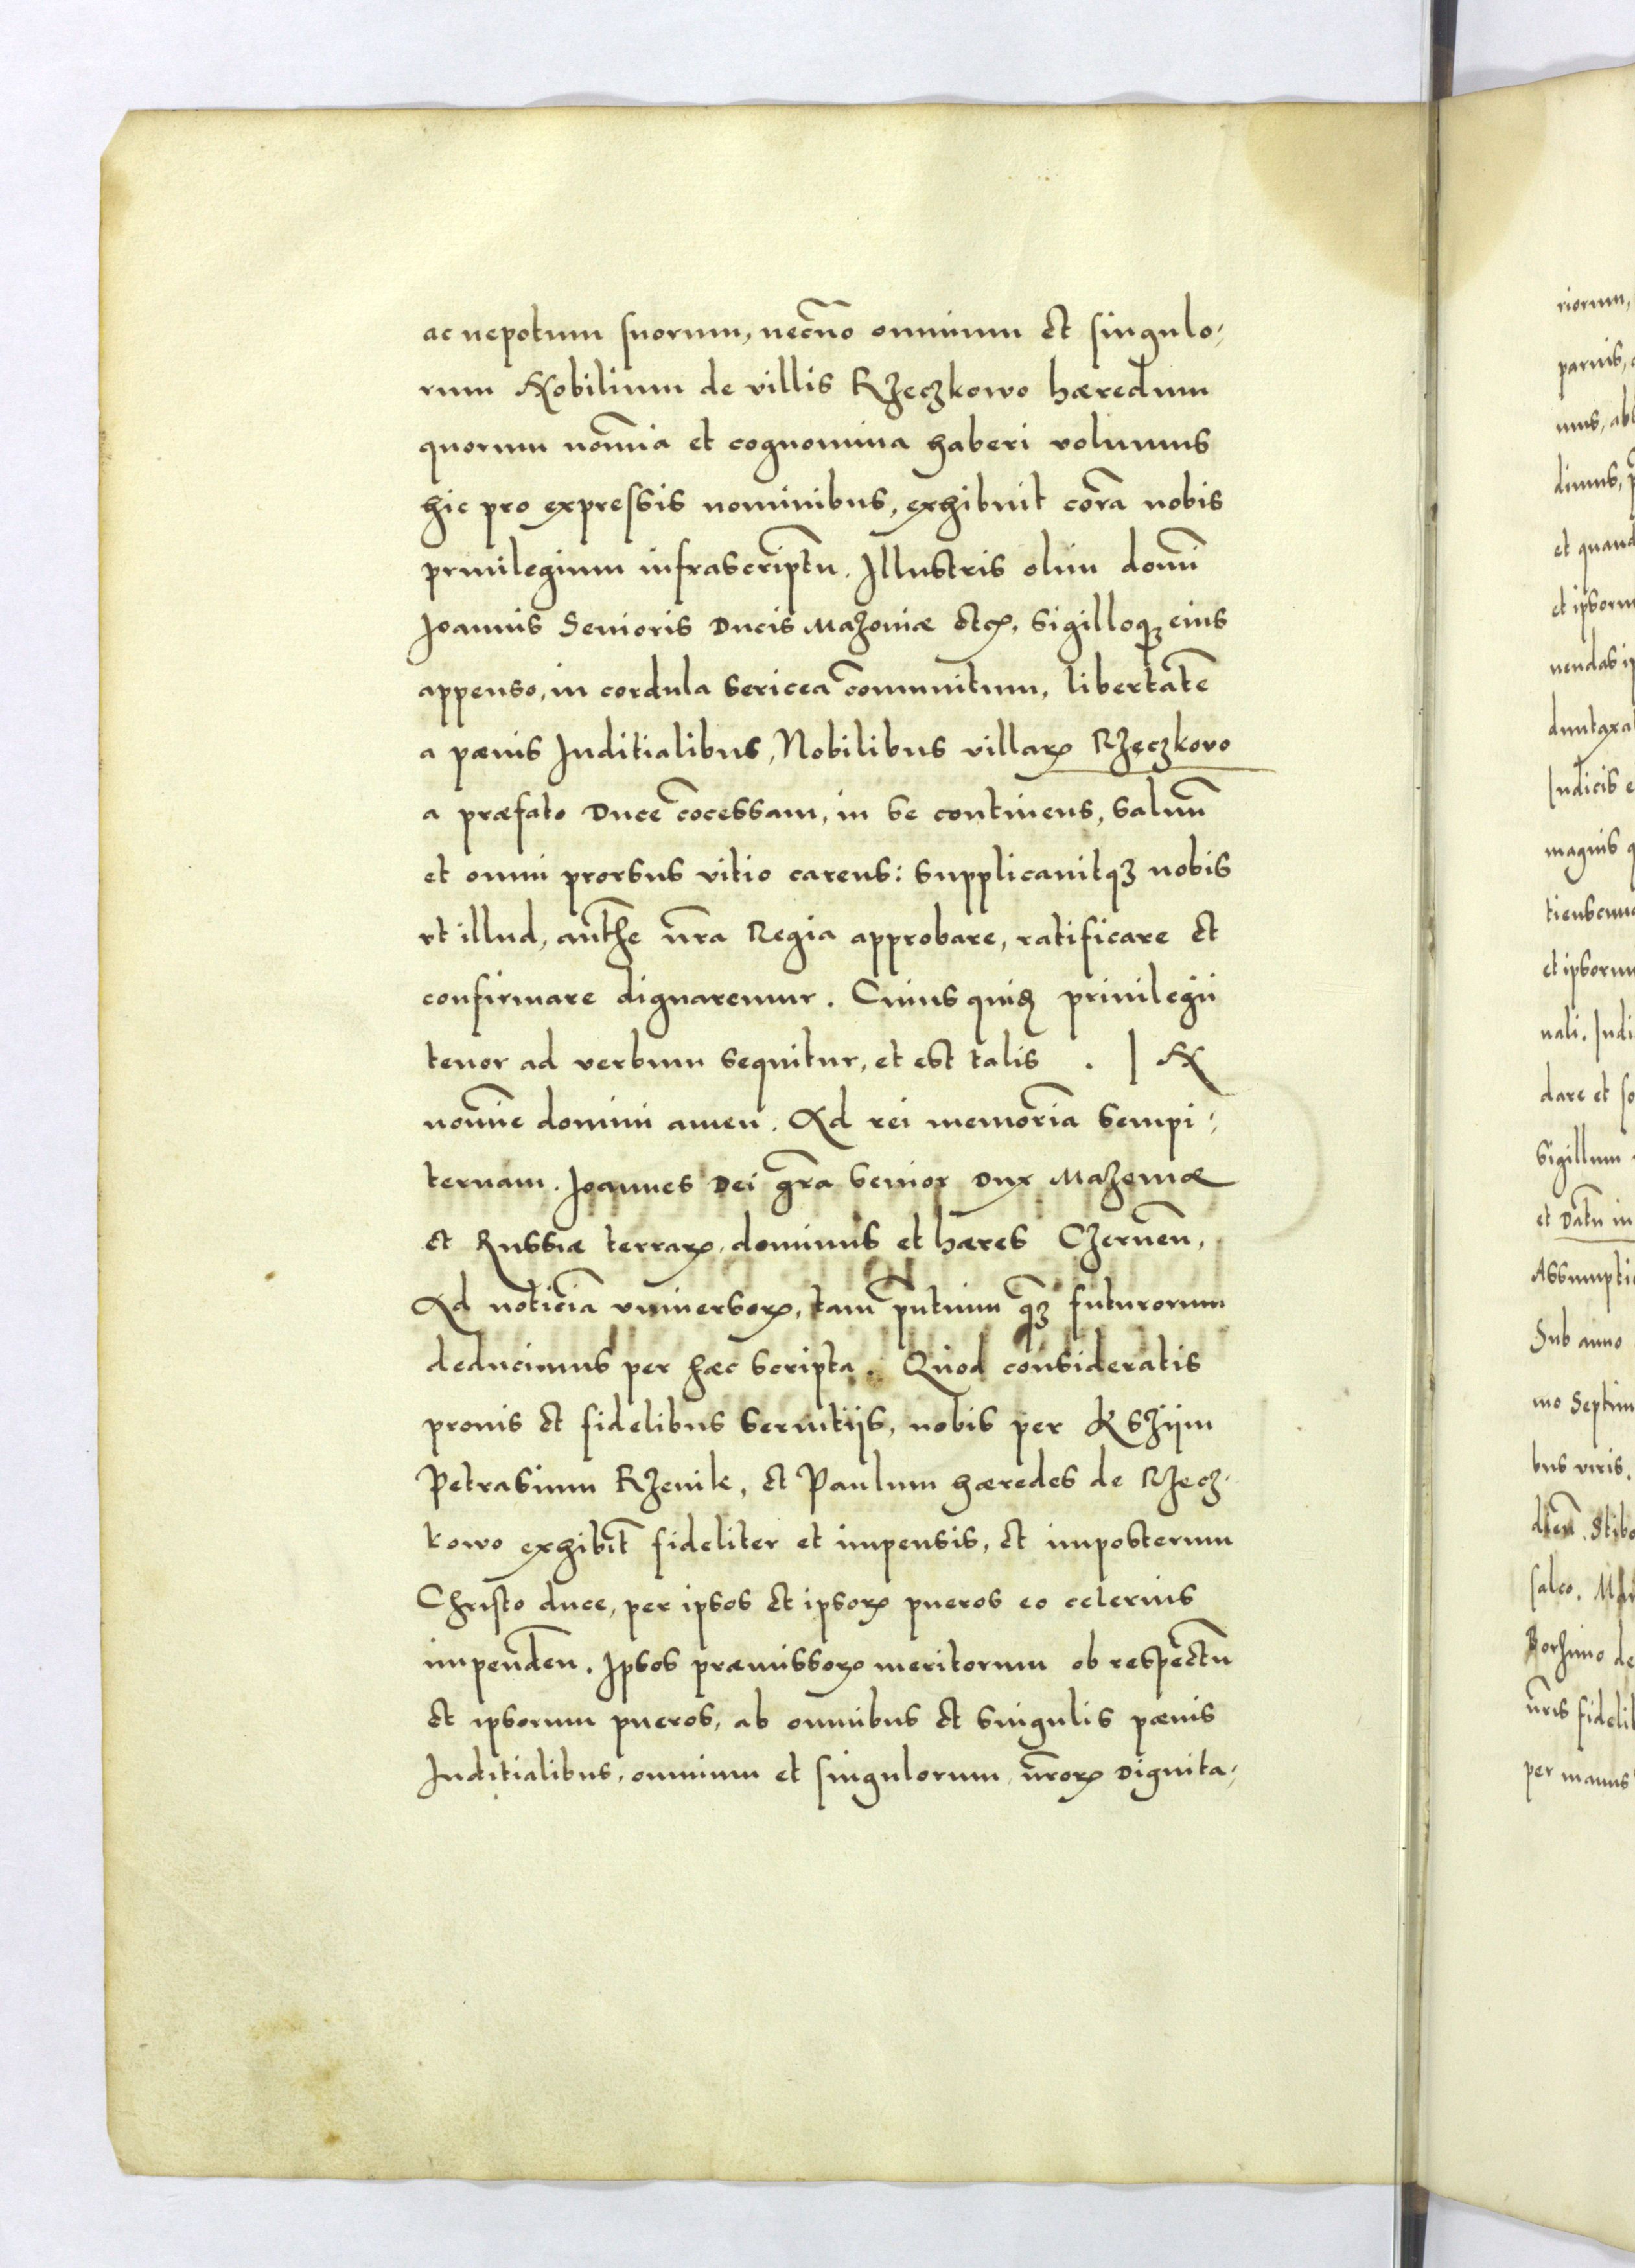 ac nepotum suorum, necnõ omnium et singulo-
rum Nobilium de villis Rzeczkowo hæredum
quorum nom̃ia et cognomina haberi volumus
hic pro expressis nominibus, exhibuit corã nobis
priuilegium infrascriptũ. Illustris olim domĩ
Ioannis Senioris Ducis Mazouiæ etc, sigilloqꝫ eius
appenso, in cordula sericea cõmunitum, libertatẽ
a pænis Iuditialibus, Nobilibus villaꝝ Rzeczkovo
a præfato Duce cõcessam, in se continens, saluũ
et omni prorsus vitio carens: supplicauitqꝫ nobis
vt illud, authẽ nr̃a Regia approbare, ratificare et
confirmare dignaremur. Cuius quidẽ priuilegii
tenor ad verbum sequitur, et est talis . I N
nom̃ie domini amen. Ad rei memoriã sempi-
ternam. Ioannes Dei gr̃a senior Dux Mazouiæ
et Russiæ terraꝝ, dominus et hæres Czerneñ,
Ad noticiã vniuersoꝝ, tam p̃ntium qꝫ futurorum
deducimus per hæc scripta. Quod consideratis
pronis et fidelibus seruitiis, nobis per Kszijm
Petrasium Rzenik, et Paulum hæredes de Rzecz-
kowo exhibit̃ fideliter et impensis, et imposterum
Christo duce, per ipsos et ipsoꝝ pueros eo celerius
impendeñ. Ipsos præmissoꝝ meritorum ob respectũ
et ipsorum pueros, ab omnibus et singulis pænis
Iuditialibus, omnium et singulorum, nr̃oꝝ Dignita-
riorum,
paruis,
et quand
et ipsorum
nendas
duntaxat
Iudicis e
magnis q
et ipsorum
nali. Iudi
dare et so
sigillum
et Datũ in
Assumpti
Sub anno
mo septim
bus viris.
Borzimo de
nr̃is fideli
per manus